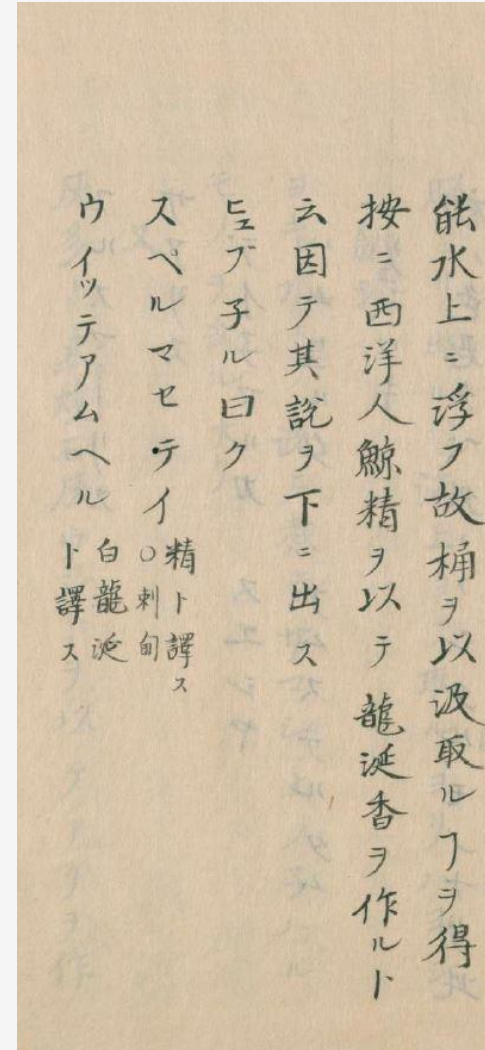 能水上ニ浮フ故桶ヲ以汲取ルヿヲ得
按ニ西洋人鯨精ヲ以テ龍涎香ヲ作ルト
云因テ其説ヲ下ニ出ス
ヒュブ子ル曰ク
スペルマセテイ精ト譯ス○刺甸
ウイッテアムヘル白龍涎ト譯ス